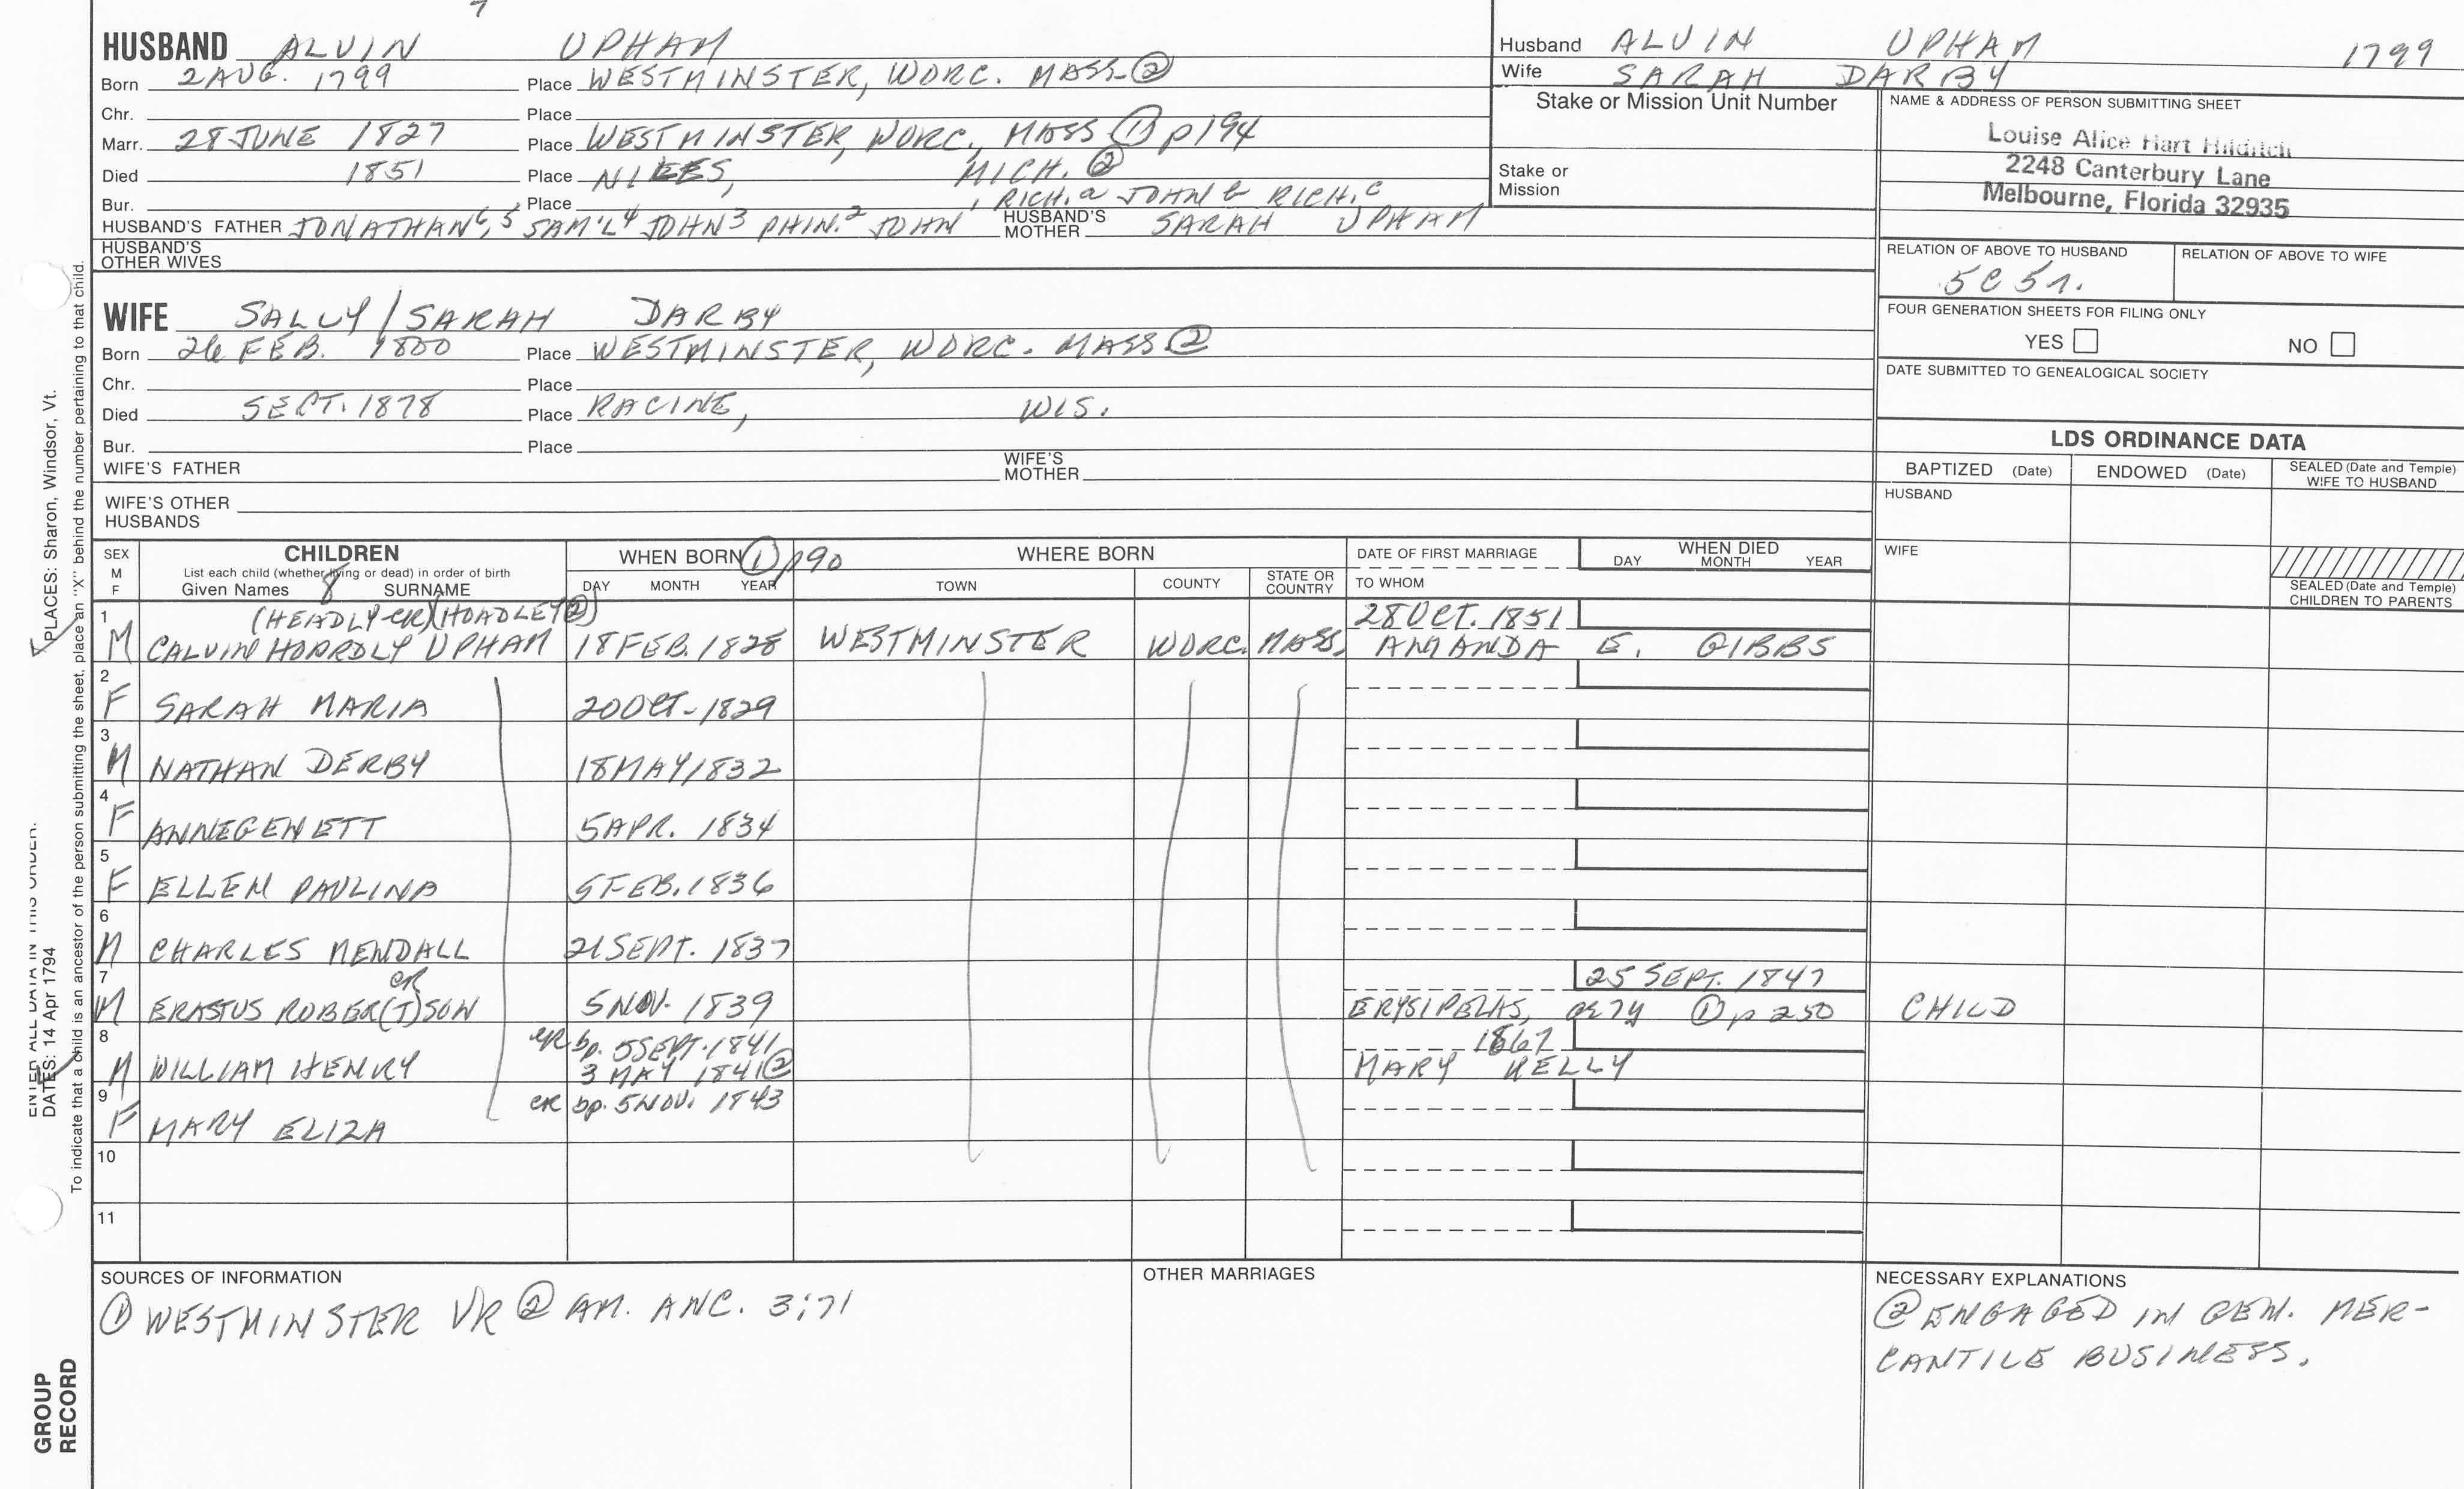 HUSBAND ALVIN UPHAM
Born 2 AUG. 1799 Place WESTMINSTER, WORC. MASS. ②
Chr. Place
Marr. 28 JUNE 1827 Place WESTMINSTER, WORC., MASS ① p194
Died 1851 Place NILES, MICH. ②
Bur. Place
HUSBAND'S FATHER JONATHAN 6, 5 SAM'L 4 JOHN 3 PHIN. 2 JOHN 1, RICH. a JOHN b RICH. c HUSBAND'S MOTHER SARAH UPHAM
HUSBAND'S OTHER WIVES
WIFE SALLY/SARAH DARBY
Born 26 FEB. 1800 Place WESTMINSTER, WORC. MASS ②
Chr. Place
Died SEPT. 1878 Place RACINE, WIS.
Bur. Place
WIFE'S FATHER WIFE'S MOTHER
WIFE'S OTHER HUSBANDS
Husband ALVIN UPHAM 1799
Wife SARAH DARBY
Stake or Mission Unit Number
Stake or Mission
NAME & ADDRESS OF PERSON SUBMITTING SHEET
Louise Alice Hart Hilditch
2248 Canterbury Lane
Melbourne, Florida 32935
RELATION OF ABOVE TO HUSBAND RELATION OF ABOVE TO WIFE
5C 5r.
FOUR GENERATION SHEETS FOR FILING ONLY
YES NO
DATE SUBMITTED TO GENEALOGICAL SOCIETY
LDS ORDINANCE DATA
BAPTIZED (Date) ENDOWED (Date) SEALED (Date and Temple) WIFE TO HUSBAND
HUSBAND
WIFE
SEALED (Date and Temple) CHILDREN TO PARENTS
SEX M F CHILDREN WHEN BORN ① p190 WHERE BORN DATE OF FIRST MARRIAGE WHEN DIED
List each child (whether living or dead) in order of birth DAY MONTH YEAR
Given Names 8 SURNAME DAY MONTH YEAR TOWN COUNTY STATE OR COUNTRY TO WHOM
1 (HEADLY-CR) (HOADLEY ②) 28 OCT. 1851
M CALVIN HOARDLY UPHAM 18 FEB. 1828 WESTMINSTER WORC. MASS. AMANDA E. GIBBS
2
F SARAH MARIA 20 OCT. 1829
3
M NATHAN DERBY 18 MAY 1832
4
F ANNEGENETT 5 APR. 1834
5
F ELLEN PAULINA 5 FEB. 1836
6
M CHARLES MENDALL 21 SEPT. 1837
7 CR 25 SEPT. 1847
M ERASTUS ROBER(T)SON 5 NOV. 1839 ERYSIPELAS, ae 7y ① p 250 CHILD
8 CR bp. 5 SEPT. 1841 1867
M WILLIAM HENRY 3 MAY 1841 ② MARY KELLY
9 CR bp. 5 NOV. 1843
F MARY ELIZA
10
11
SOURCES OF INFORMATION
① WESTMINSTER VR ② AM. ANC. 3:71
OTHER MARRIAGES
NECESSARY EXPLANATIONS
② ENGAGED IN GEN. MER-
CANTILE BUSINESS.
PLACES: Sharon, Windsor, Vt.
To indicate that a child is an ancestor of the person submitting the sheet, place an "X" behind the number pertaining to that child.
ENTER ALL DATA IN THIS ORDER:
DATES: 14 Apr 1794
GROUP
RECORD